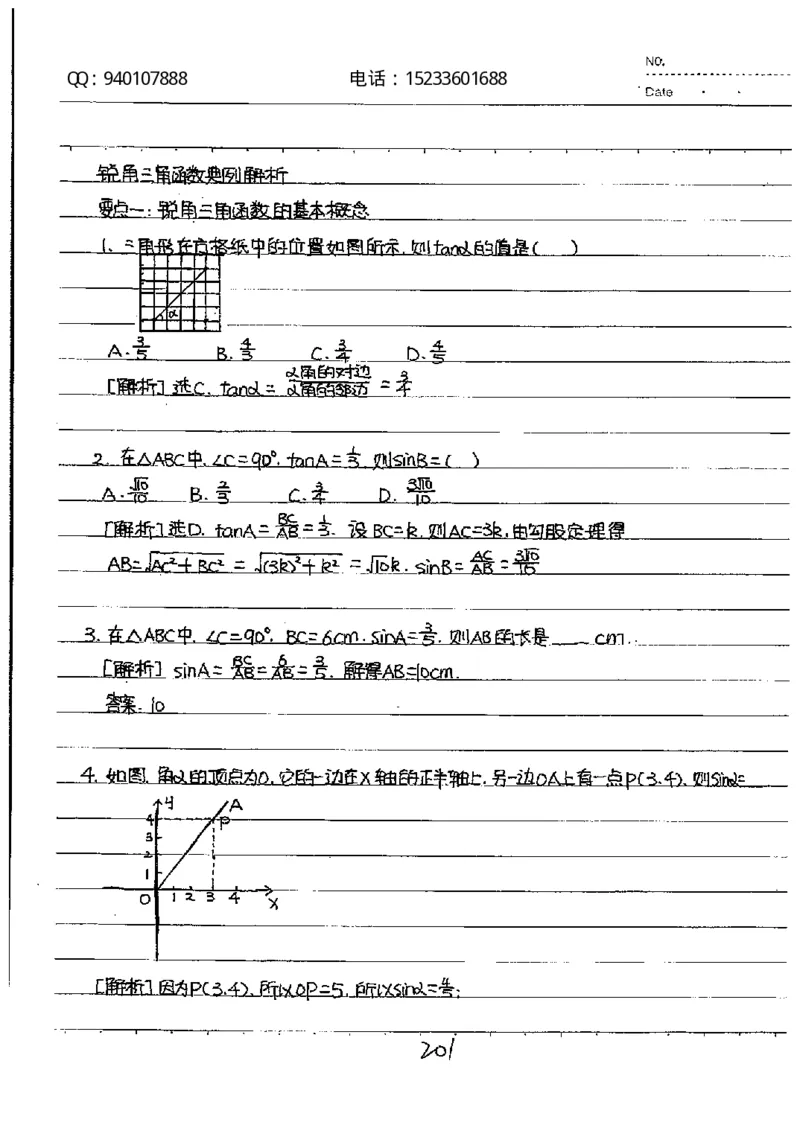 NO.
QQ：940107888 电话：15233601688
Date
锐角三角函数典例解析
要点一：锐角三角函数的基本概念
1、三角形在方格纸中的位置如图所示，则tanα的值是( )
α
A. 3/5 B. 4/3 C. 3/4 D. 4/5
[解析] 选C. tanα = α角的对边/α角的邻边 = 3/4
2. 在△ABC中，∠C=90°，tanA=1/3，则sinB=( )
A. √10/10 B. 2/3 C. 3/4 D. 3√10/10
[解析] 选D. tanA = BC/AB = 1/3. 设BC=k，则AC=3k，由勾股定理得
AB=√(AC²+BC²) = √((3k)²+k²) = √10k. sinB= AC/AB = 3√10/10
3. 在△ABC中，∠C=90°，BC=6cm，sinA=3/5，则AB的长是 ___ cm.
[解析] sinA= BC/AB = 6/AB = 3/5. 解得AB=10cm.
答案. 10
4. 如图，角α的顶点为O，它的一边在X轴的正半轴上，另一边OA上有一点P(3,4)，则sinα=
y A
4 P
3
2
1
O 1 2 3 4 X
[解析] 因为P(3,4)，所以OP=5，所以sinα=4/5;
201